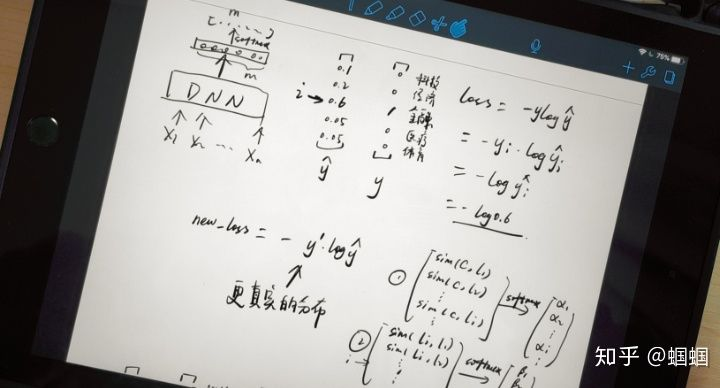 m
softmax
m
DNN
X₁ X₂ ... Xₙ
0.1
0.2
i → 0.6
0.05
0.05
ŷ
0 科技
0 经济
1
0 医疗
0 体育
y
loss = -ylogŷ
= -yᵢ·logŷᵢ
= -logŷᵢ
= -log0.6
new_loss = - y'·logŷ
更真实的分布
① sim(C, l₁)
sim(C, l₂)
⋮
sim(C, lᵢ)
⋮
softmax
α₁
α₂
⋮
αᵢ
⋮
② sim(lᵢ, l₁)
sim(lᵢ, l₂)
⋮
i →
softmax
β₁
75%
知乎 @蝈蝈